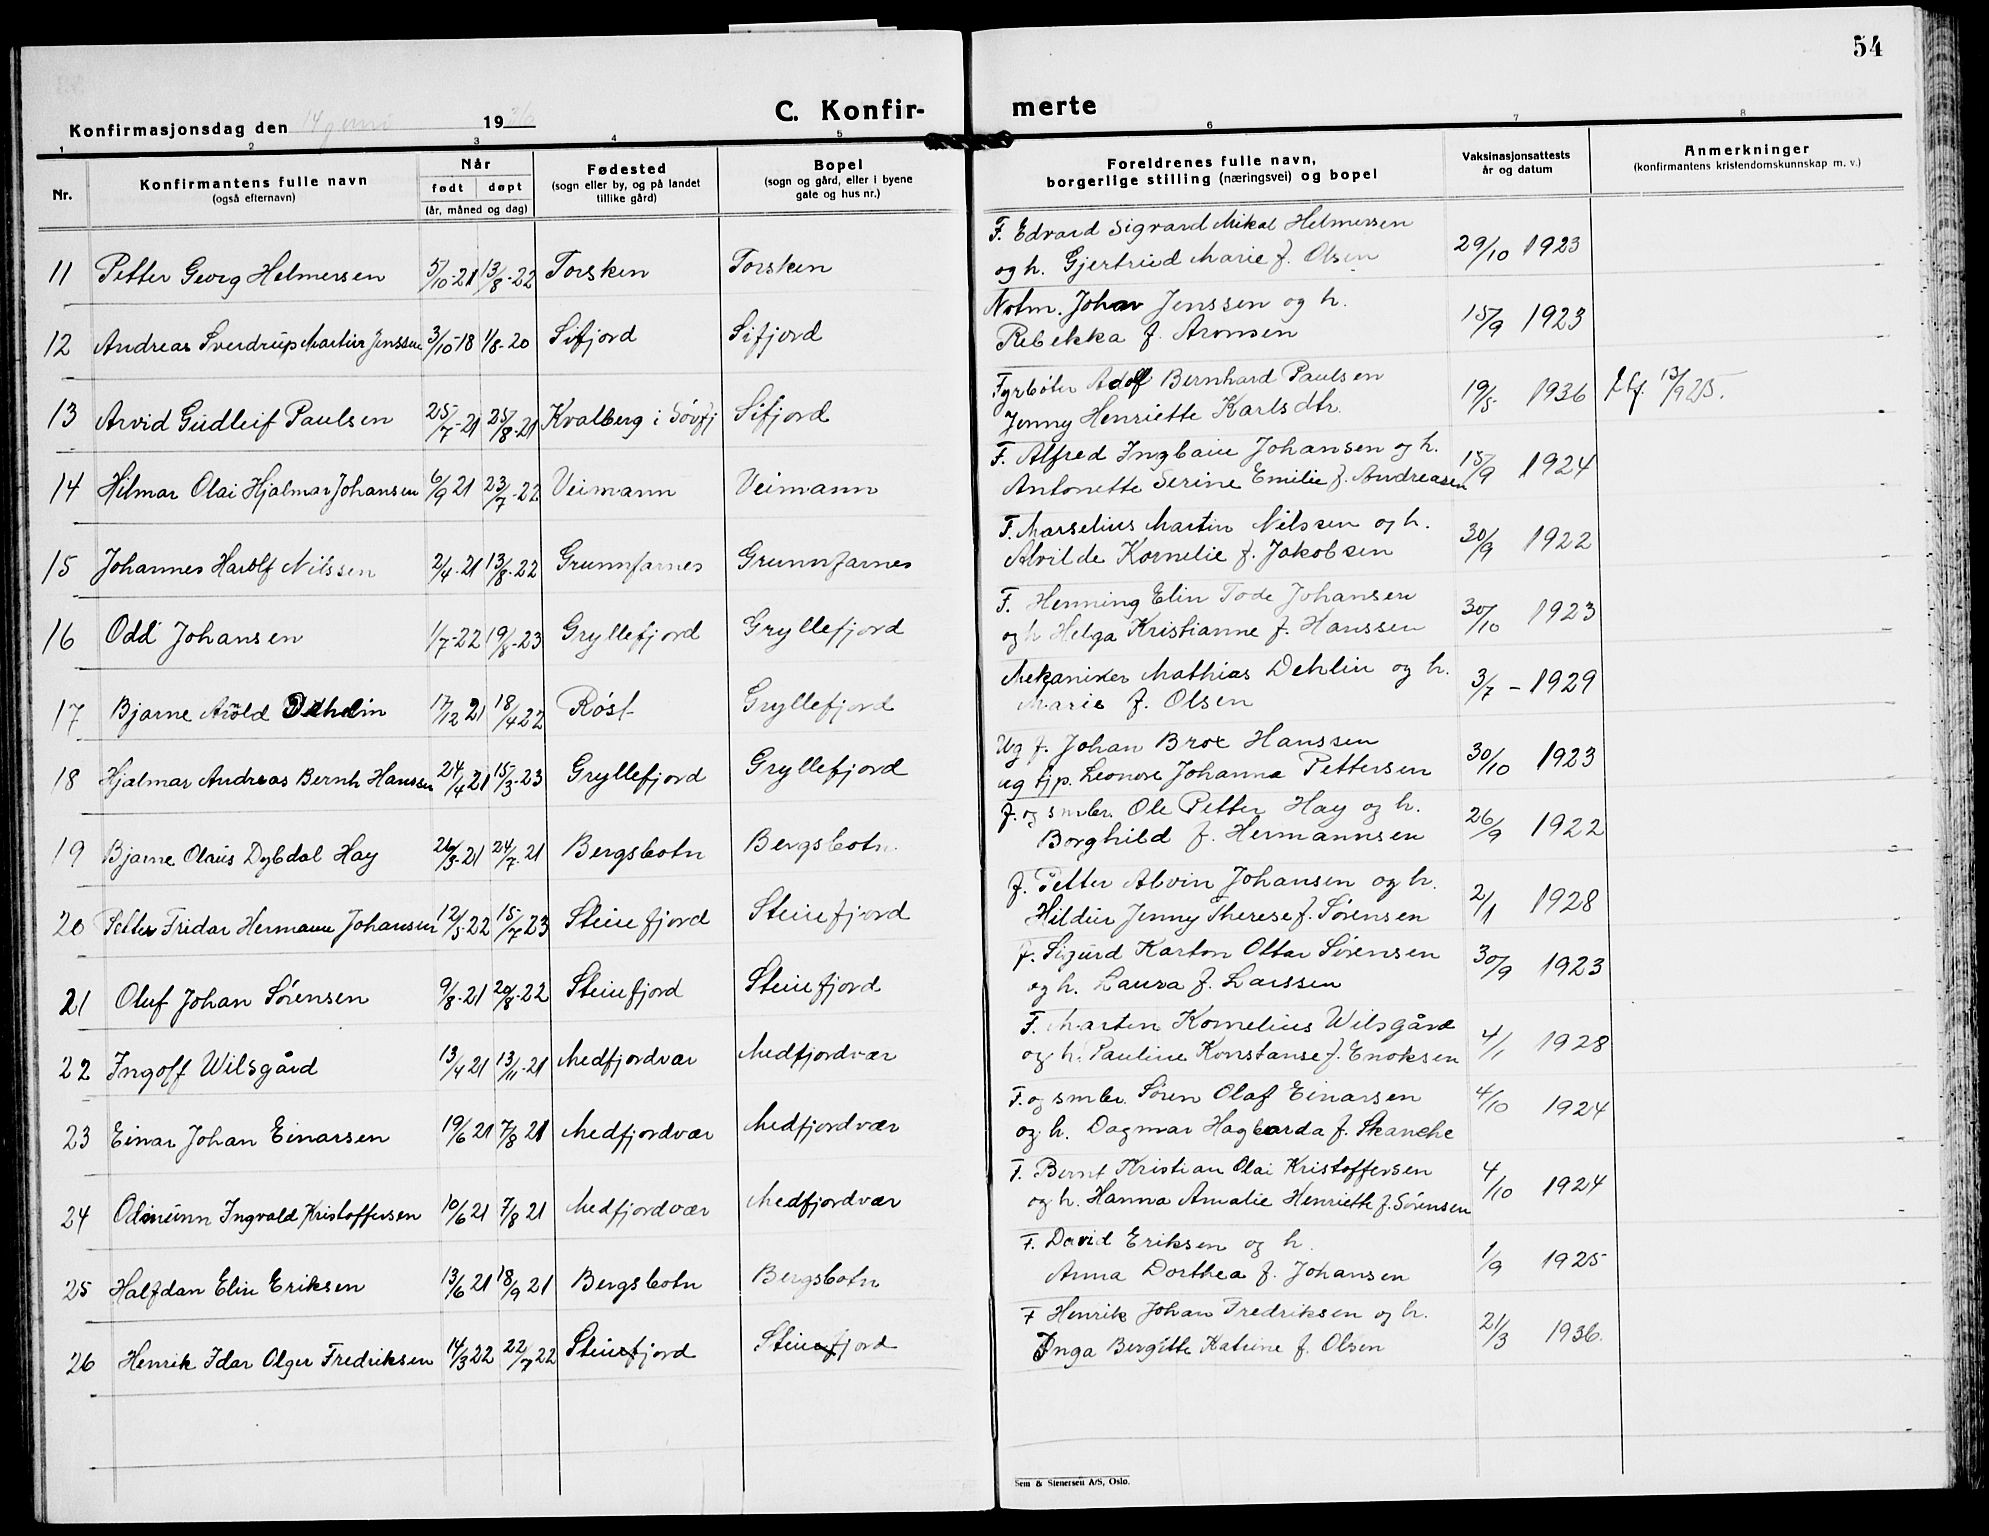 54
C. Konfir- merte
Konfirmasjonsdag den 14 juni 1936
1 2 3 4 5 6 7 8
Nr.
Konfirmantens fulle navn
(også efternavn)
Når
født døpt
(år, måned og dag)
Fødested
(sogn eller by, og på landet
tillike gård)
Bopel
(sogn og gård, eller i byene
gate og hus nr.)
Foreldrenes fulle navn,
borgerlige stilling (næringsvei) og bopel
Vaksinasjonsattests
år og datum
Anmerkninger
(konfirmantens kristendomskunnskap m. v.)
F. Edvard Sigvard Mikal Helmersen
11 Petter Georg Helmersen 5/10-21 13/8-22 Torsken Torsken og h. Gjertrud Marie f. Olsen 29/10 1923
Notm. Johan Jenssen og h.
12 Andreas Sverdrup Martin Jenssen 3/10-18 1/8-20 Sifjord Sifjord Rebekka f. Aronsen 15/9 1923
Fyrbøter Adolf Bernhard Paulsen
13 Arvid Gudleif Paulsen 25/7-21 25/8-21 Kvalberg i Sørfj Sifjord Jenny Henriette Karlsdtr. 19/5 1936 13/9 25.
F. Alfred Ingbain Johansen og h.
14 Hilmar Olai Hjalmar Johansen 6/9 21 23/7-22 Veimann Veimann Antonette Serine Emilie f. Andreasen 15/9 1924
F. Marselius Martin Nilssen og h.
15 Johannes Harolf Nilssen 2/4-21 13/8-22 Grunnfarnes Grunnfarnes Alvilde Kornelie f. Jakobsen 30/9 1922
F. Henning Elin Tode Johansen
16 Odd Johansen 1/7-22 19/8-23 Gryllefjord Gryllefjord og h Helga Kristianne f. Hanssen 30/10 1923
Mekaniker Mathias Dehlin og h.
17 Bjarne Arold Dehlin 17/12 21 18/4 22 Røst Gryllefjord Marie f. Olsen 3/7 - 1929
Ug f. Johan Brox Hanssen
18 Hjalmar Andreas Bernh Hanssen 24/4 21 15/3-23 Gryllefjord Gryllefjord ug tjp. Leonore Johanna Pettersen 30/10 1923
f. og smbr. Ole Petter Hay og h.
19 Bjarne Olaus Dybdal Hay 26/3-21 24/7-21 Bergsbotn Bergsbotn. Borghild f. Hermannsen 26/9 1922
f. Petter Alvin Johansen og h.
20 Petter Fridar Hermann Johansen 12/5-22 15/7 23 Steinefjord Steinefjord Hildur Jenny Therese f. Sørensen 2/1 1928
f. Sigurd Karton Ottar Sørensen
21 Oluf Johan Sørensen 9/8-21 20/8-22 Steinefjord Steinefjord og h. Laura f. Larssen 30/9 1923
F. Marten Kornelius Wilsgård
22 Ingolf Wilsgård 13/4 21 13/11-21 Medfjordvær Medfjordvær og h. Pauline Konstanse f. Enoksen 4/1 1928
F. og smbr. Søren Olaf Einarsen
23 Einar Johan Einarsen 19/6 21 7/8 21 Medfjordvær Medfjordvær og h. Dagmar Hagbarda f. Skanche 4/10 1924
F. Bernt Kristian Olai Kristoffersen
24 Odmunn Ingvald Kristoffersen 10/6 21 7/8 21 Medfjordvær Medfjordvær og h. Hanna Amalie Henriette f. Sørensen 4/10 1924
F. David Eriksen og h.
25 Halfdan Elin Eriksen 13/6 21 18/9 21 Bergsbotn Bergsbotn Anna Dorthea f. Johansen 1/9 1925
F Henrik Johan Fredriksen og h.
26 Henrik Idar Olger Fredriksen 14/3 22 22/7 22 Steinefjord Steinefjord Inga Bergitte Katrine f. Olsen 21/3 1936.
Sem & Stenersen A/S, Oslo.